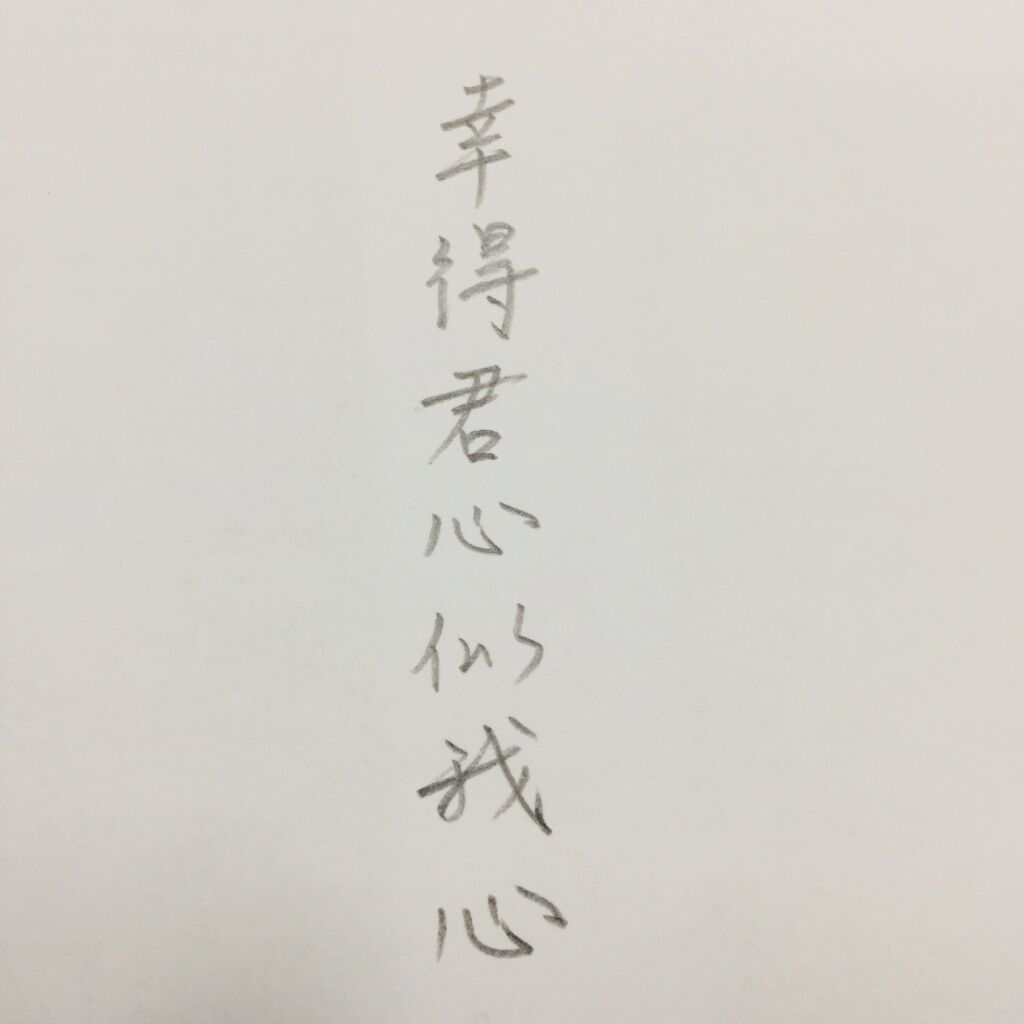 幸得君心似我心